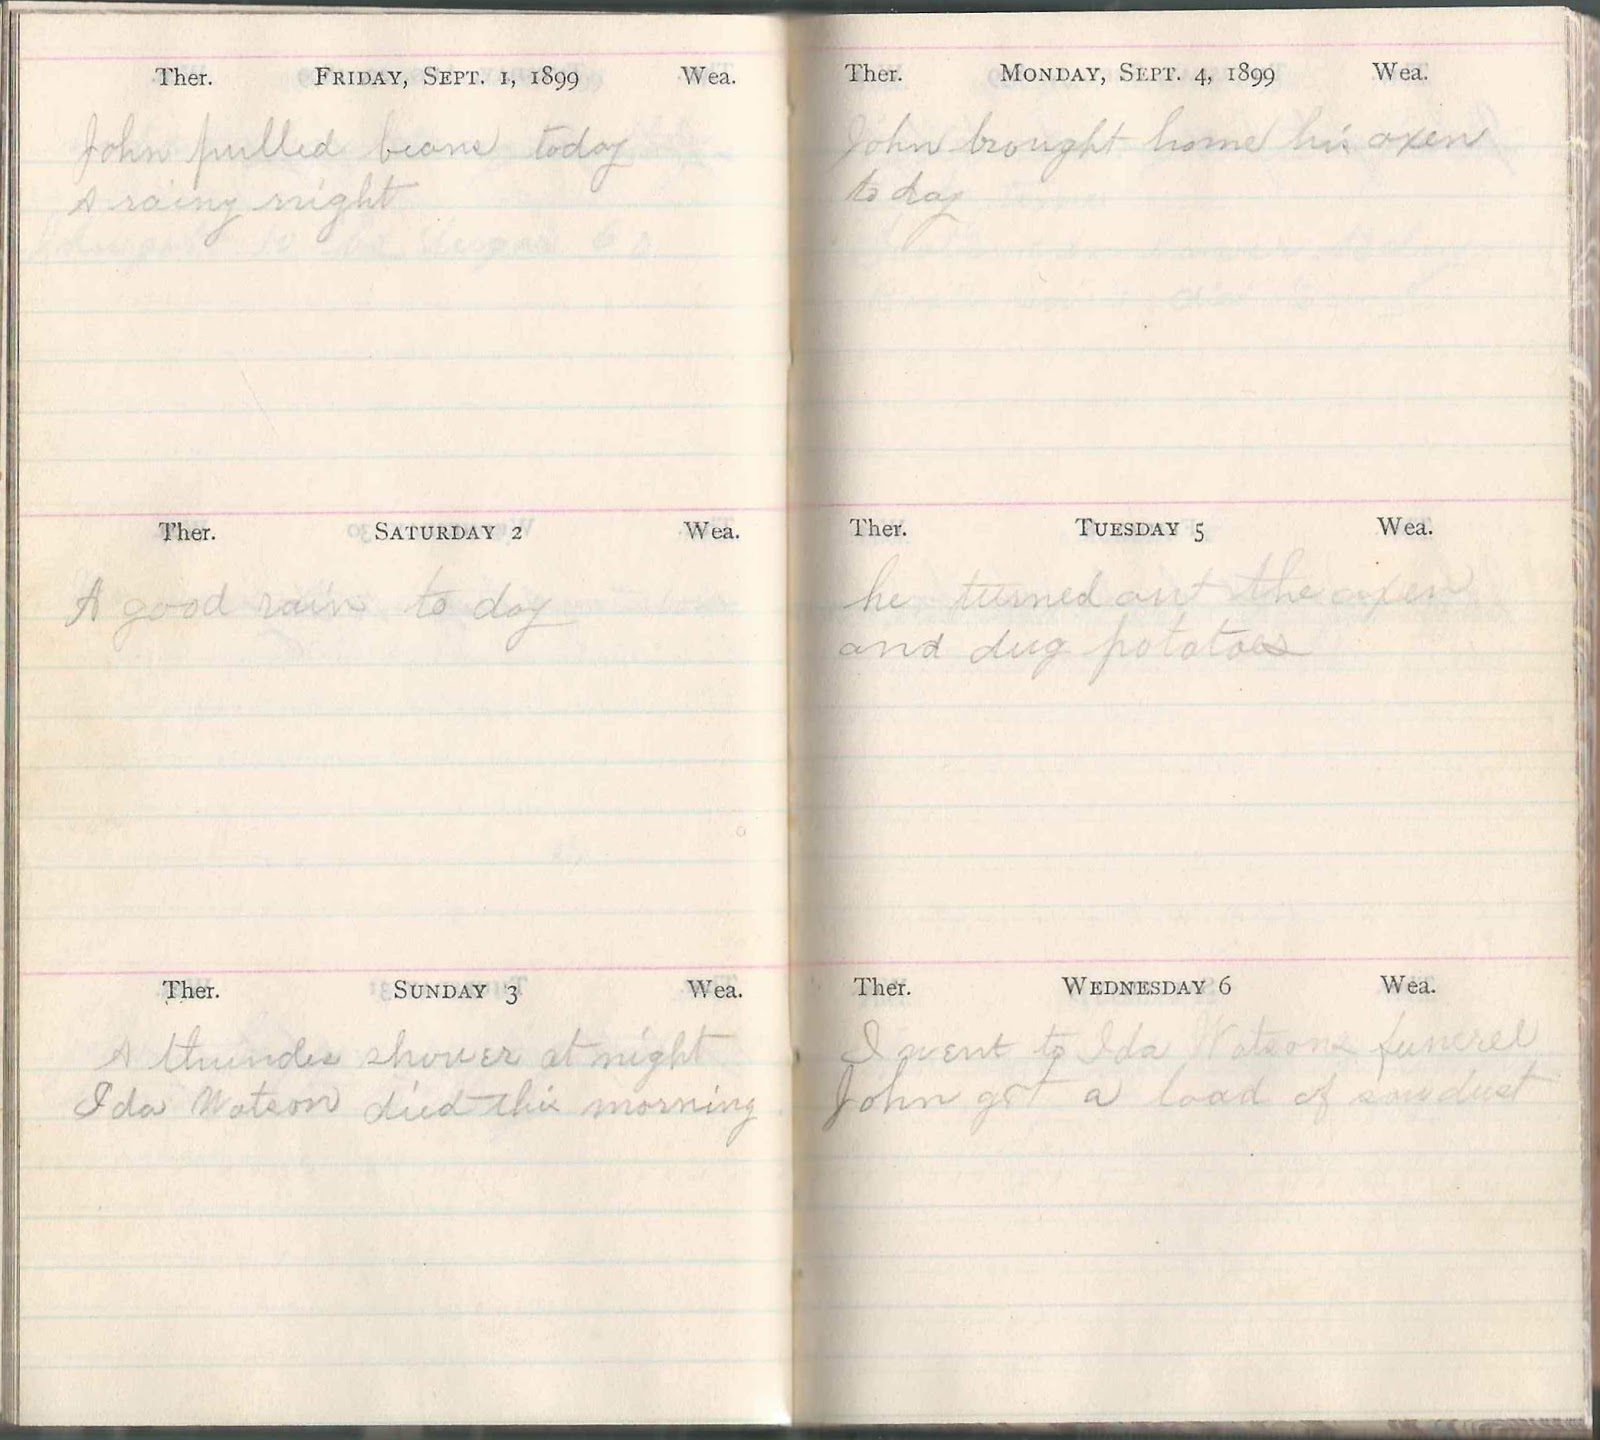 Ther. FRIDAY, SEPT. 1, 1899 Wea.
John pulled beans today
A rainy night
Ther. SATURDAY 2 Wea.
A good rain to day
Ther. SUNDAY 3 Wea.
A thunder shower at night
Ida Watson died this morning
Ther. MONDAY, SEPT. 4, 1899 Wea.
John brought home his oxen
to day
Ther. TUESDAY 5 Wea.
he turned out the oxen
and dug potatoes
Ther. WEDNESDAY 6 Wea.
I went to Ida Watsons funerel
John got a load of sawdust